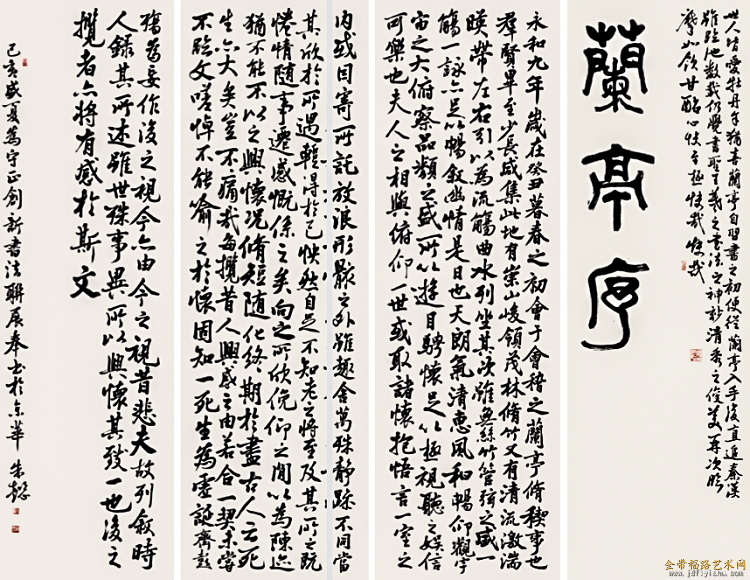 世人皆愛牡丹予獨喜蘭亭自習書之初便從蘭亭入手後直追秦漢
雖臨池數載仍覺書聖王羲之書法之神韵清秀之俊美再次臨
摩如飲甘酩心快哉快哉
蘭亭序
永和九年歲在癸丑暮春之初會于會稽之蘭亭脩稧事也
羣賢畢至少長咸集此地有崇山峻領茂林脩竹又有清流激湍
暎帶左右引以為流觴曲水列坐其次雖無絲竹管弦之盛一
觴一詠亦足以暢敘幽情是日也天朗氣清惠風和暢仰觀宇
宙之大俯察品類之盛所以遊目騁懷足以極視聽之娛信
可樂也夫人之相與俯仰一世或取諸懷抱悟言一室之
內或因寄所託放浪形骸之外雖趣舍萬殊靜躁不同當
其欣於所遇蹔得於己怏然自足不知老之將至及其所之既
惓情隨事遷感慨係之矣向之所欣俛仰之閒以為陳迹
猶不能不以之興懷況脩短隨化終期於盡古人云死
生亦大矣豈不痛哉每攬昔人興感之由若合一契未嘗
不臨文嗟悼不能喻之於懷固知一死生為虛誕齊彭
殤為妄作後之視今亦由今之視昔悲夫故列敘時
人錄其所述雖世殊事異所以興懷其致一也後之
攬者亦將有感於斯文
己亥盛夏為守正創新書法聯展奉書於京華 朱懿
金带福路艺术网
www.jdflyishu.com